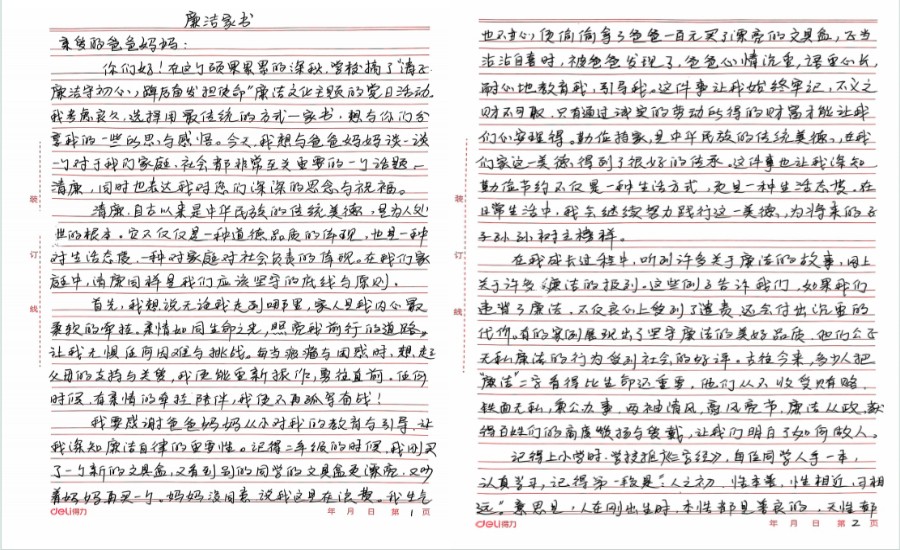 廉洁家书
亲爱的爸爸妈妈：
你们好！在这个硕果累累的深秋，学校搞了“清正
廉洁守初心，踔厉奋发担使命”廉洁文化主题的党日活动。
我考虑良久，选择用最传统的方式—家书，想与你们分
享我的一些所思与感悟。今天，我想与爸爸妈妈谈一谈
一个对于我们家庭、社会都非常至关重要的一个话题—
清廉，同时也表达我对您们深深的思念与祝福。
清廉，自古以来是中华民族的传统美德，是为人处
世的根本。它不仅仅是一种道德品质的体现，也是一种
对生活态度、一种对家庭对社会负责的体现。在我们家
庭中，清廉同样是我们应该坚守的底线与原则。
首先，我想说无论我走到哪里，家人是我内心最
柔软的牵挂。亲情如同生命之光，照亮我前行的道路。
让我无惧任何困难与挑战。每当疲惫与困惑时，想起
父母的支持与关爱，我便能重新振作，勇往直前。任何
时候，有亲情的牵挂陪伴，我便不再孤写奋战！
我要感谢爸爸妈妈从小对我的教育与引导，让
我深知廉洁自律的重要性。记得二年级的时候，我刚买
了一个新的文具盒，又看到别的同学的文具盒更漂亮，又吵
着妈妈再买一个。妈妈没同意，说我这是在浪费。我生气
deli得力
年 月 日 第 1 页
也不甘心，便偷偷拿了爸爸一百元买了漂亮的文具盒，正当
沾沾自喜时，被爸爸发现了，爸爸心情沉重，语重心长，
耐心地教育我，引导我。这件事让我始终牢记，不义之
财不可取，只有通过诚实的劳动所得的财富才能让我
们心安理得。勤俭持家，是中华民族的传统美德，在我
们家这一美德，得到了很好的传承。这件事也让我深知
勤俭节约不仅是一种生活方式，更是一种生活态度。在
日常生活中，我会继续努力践行这一美德，为将来的子
子孙孙树立榜样。
在我成长过程中，听到许多关于廉洁的故事，网上
关于许多廉洁的报到。这些例子告诉我们，如果我们
违背了廉洁，不仅良心上受到了谴责，还会付出沉重的
代价。有的案例展现出了坚守廉洁的美好品质，他们公正
无私廉洁的行为受到社会的好评。古往今来，多少人把
“廉洁”二字看得比生命还重要，他们从不收受贿赂，
铁面无私，秉公办事，两袖清风，高风亮节，廉洁从政，获
得百姓们的高度赞扬与爱戴，让我们明白了如何做人。
记得上小学时，学校推《三字经》，每位同学人手一本，
认真学习，记得第一段是：“人之初，性本善，性相近，习相
远”。意思是，人在刚出生时，本性都是善良的，天性都
deli得力
年 月 日 第 2 页
装
订
线
装
订
线